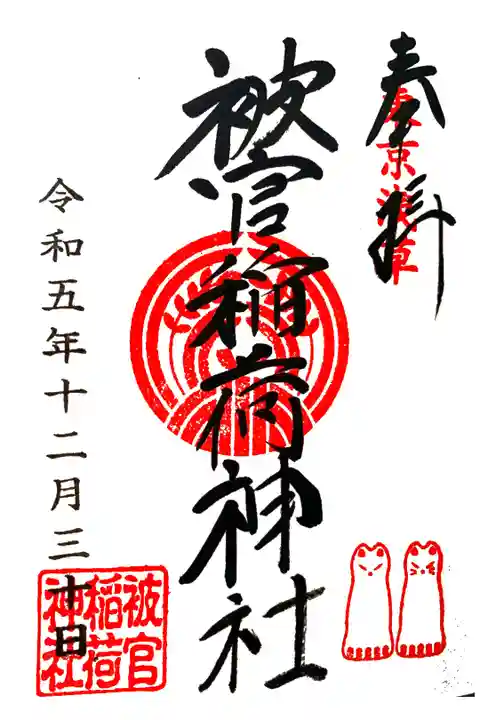 奉拝
東京浅草
被官稲荷神社
令和五年十二月三十日
被官
稲荷
神社